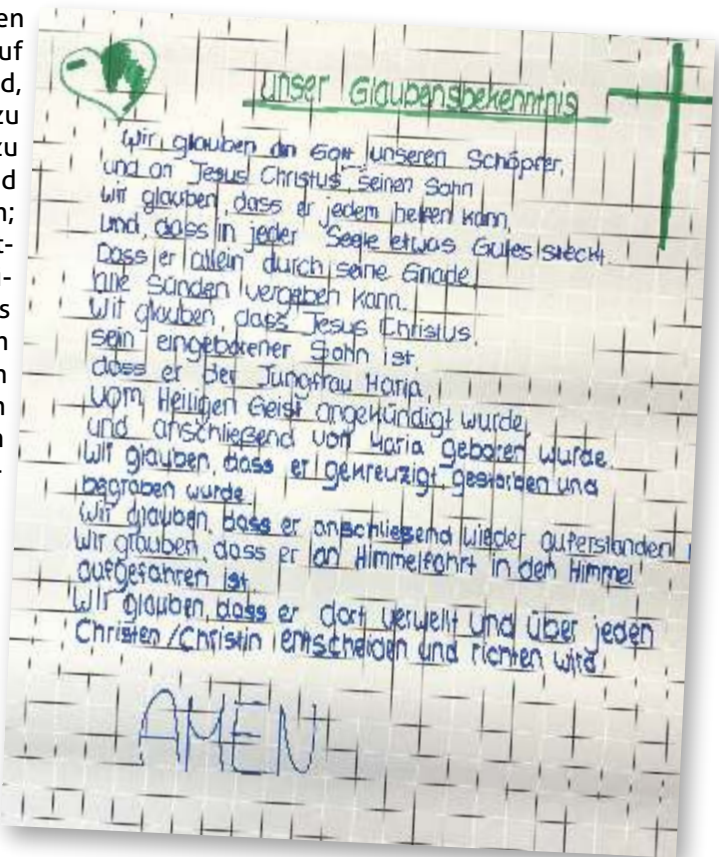 en
uf
d,
zu
zu
d
n;
t-
u-
s
n
n
n
n
unser Glaubensbekenntnis
Wir glauben an Gott, unseren Schöpfer,
und an Jesus Christus, seinen Sohn
wir glauben, dass er jedem helfen kann,
und, dass in jeder Seele etwas Gutes steckt.
Dass er allein durch seine Gnade
alle Sünden vergeben kann.
Wir glauben, dass Jesus Christus,
sein eingeborener Sohn ist,
dass er der Jungfrau Maria,
vom Heiligen Geist angekündigt wurde,
und anschließend von Maria geboren wurde.
Wir glauben, dass er gekreuzigt, gestorben und
begraben wurde.
Wir glauben, dass er anschließend wieder auferstanden
Wir glauben, dass er an Himmelfahrt in den Himmel
aufgefahren ist.
Wir glauben, dass er dort verweilt und über jeden
Christen/Christin entscheiden und richten wird.
AMEN